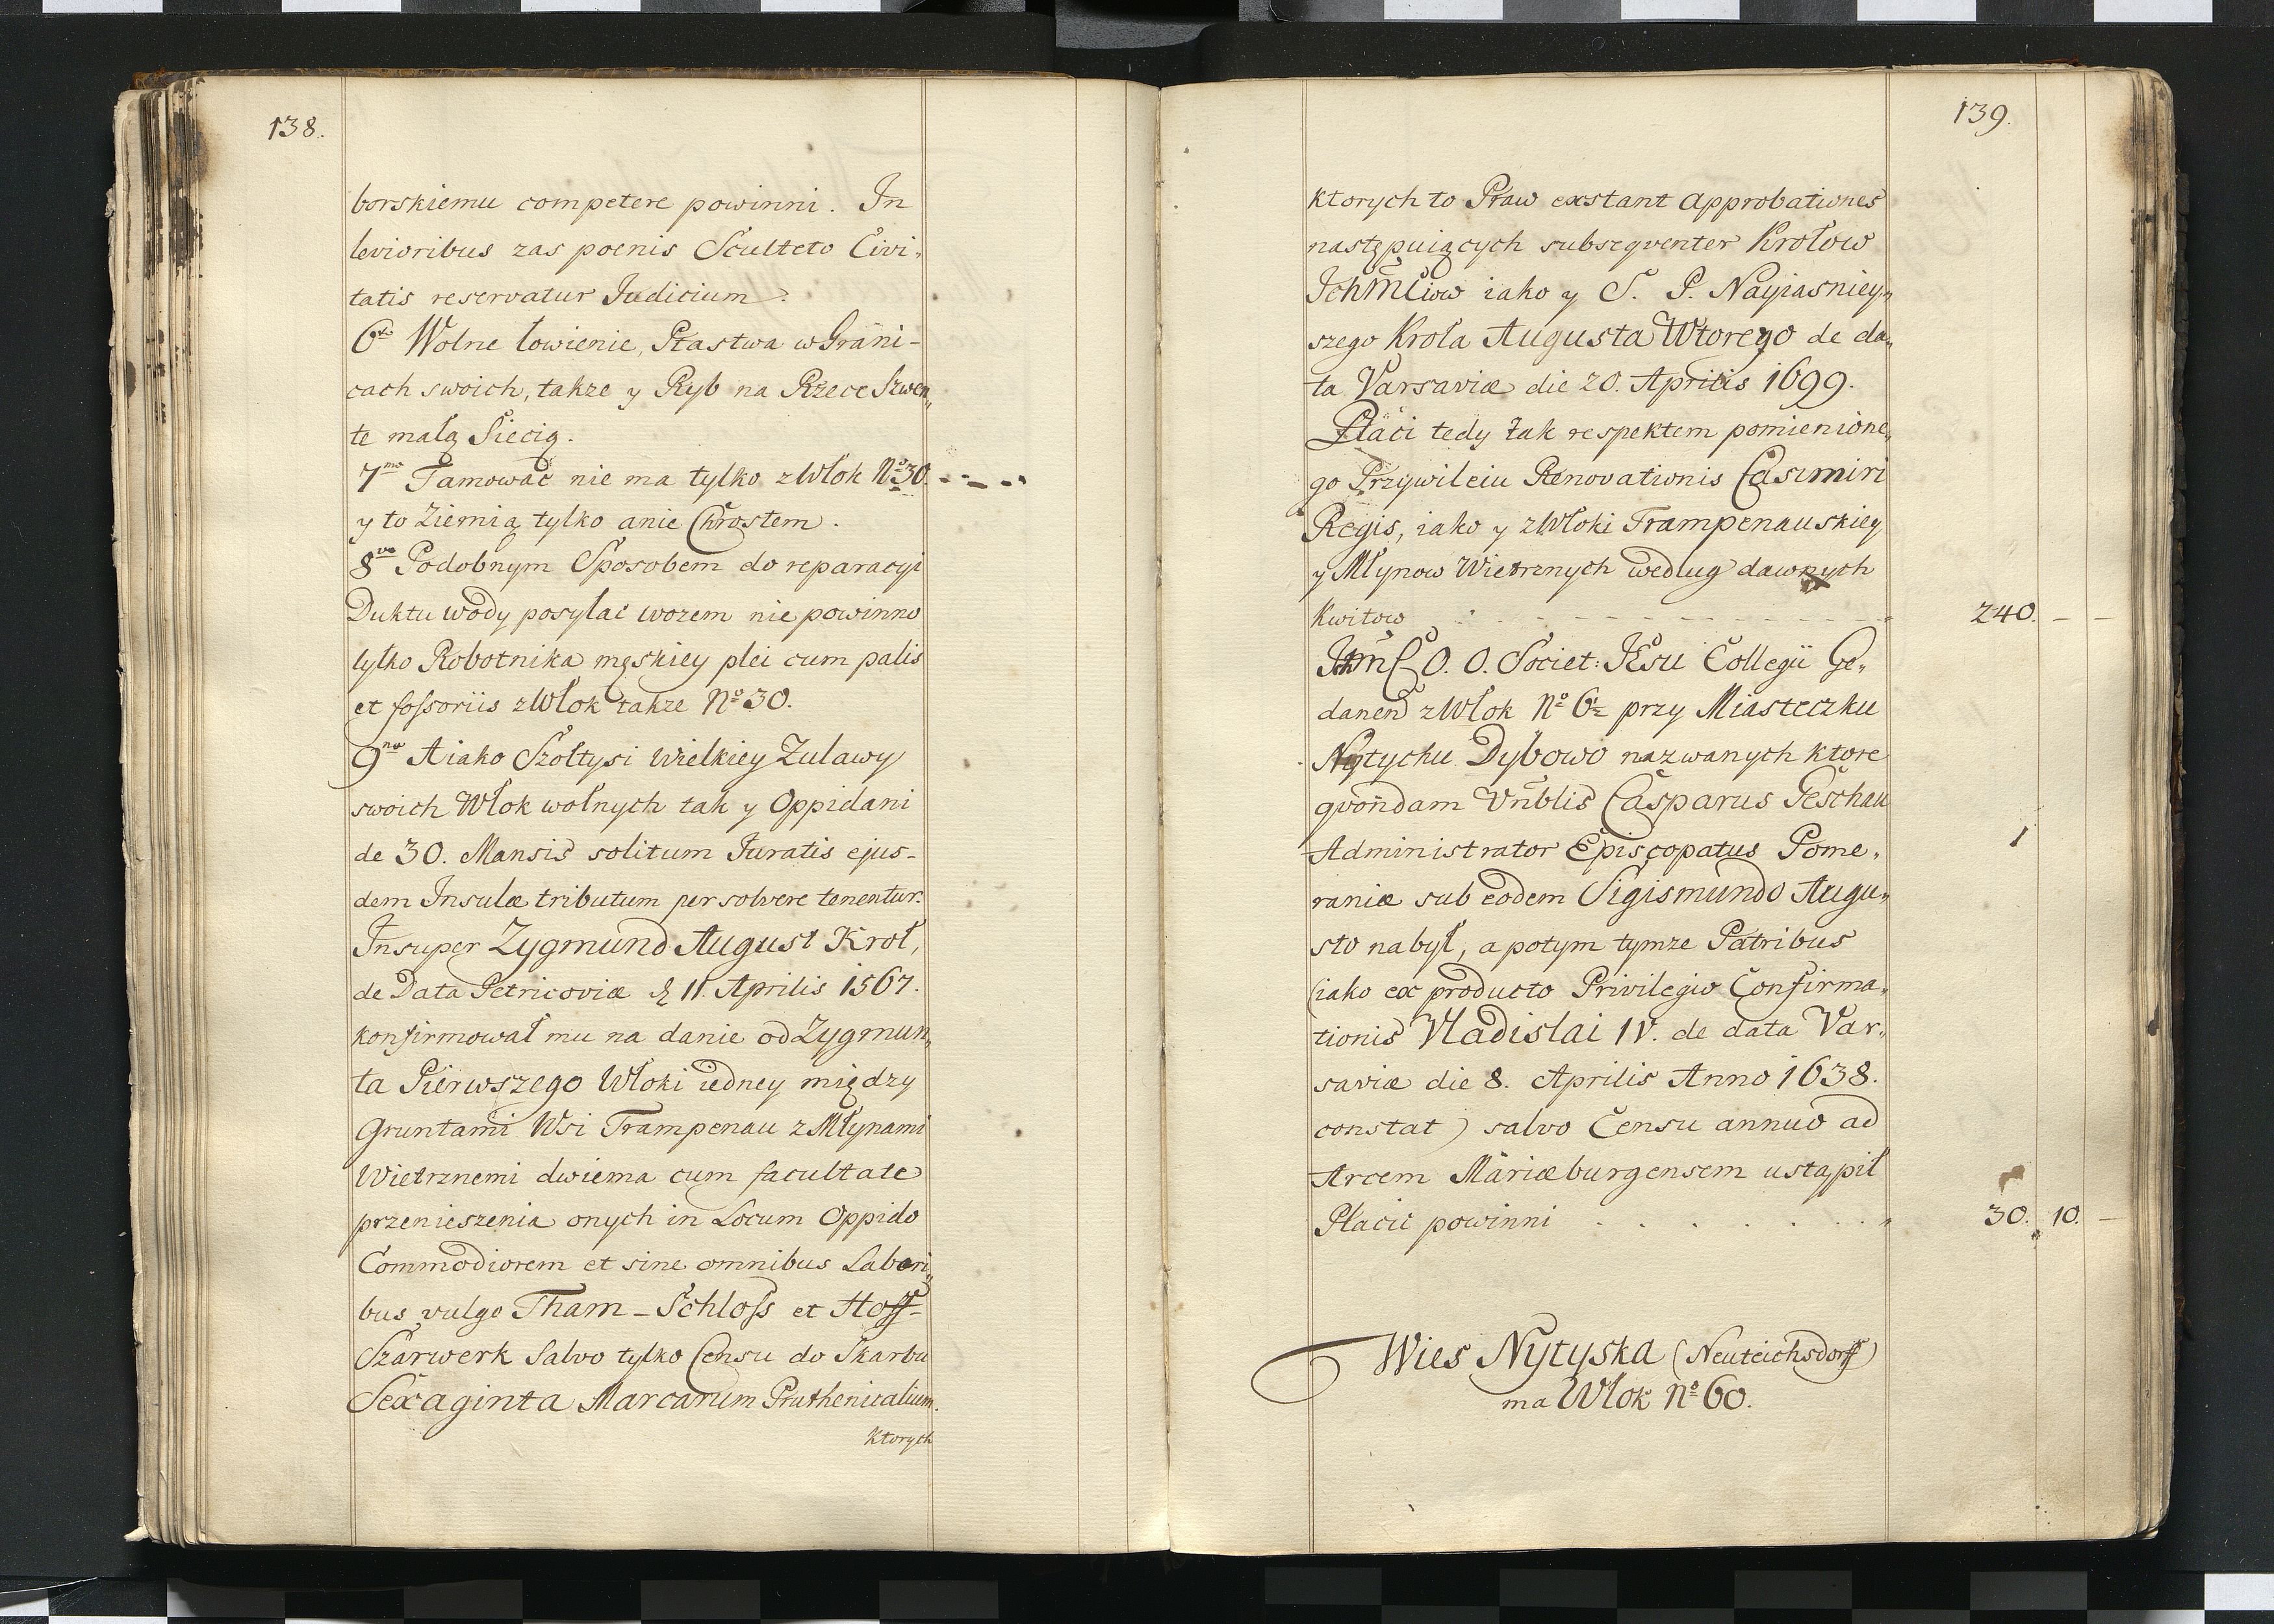 138.
borskiemu competere powinni. In
levioribus zas poenis Sculteto Civi„
tatis reservatur Judicium.
6to Wolne łowienie, Ptastwa w Grani-
cach swoich, takze y Ryb na Rzece Szwen„
te małą Siecią.
7mo Tamować nie ma tylko z Włok No 30. - - - -
y to Ziemią tylko anie Chrostem.
8vo Podobnym Sposobem do reparacyi
Duktu wody posyłać wozem nie powinno
tylko Robotnika męskiey płci cum palis
et fossoriis z Włok takze No 30.
9no A iako Szołtysi Wielkiey Zulawy
swoich Włok wolnych tak y Oppidani
de 30. Mansis solitum Juratis ejus-
dem Insulæ tributum persolvere tenentur.
Insuper Zygmund August Krol,
de Data Petricoviæ d 11. Aprilis 1567.
konfirmował mu na danie od Zygmun„
ta Pierwszego Włoki iedney między
Gruntami Wsi Trampenau z Młynami
Wietrznemi dwiema cum facultate
przenieszenia onych in Locum Oppido
Commodiorem et sine omnibus Labori„
bus vulgo Tham-Schloss et Hoff-
Szarwerk Salvo tylko Censu do Skarbu
Sexaginta Marcarum Pruthenicalium.
ktorych
139.
ktorych to Praw exstant approbationes
następuiących subseqventer Krolow
Ichmciow iako y S. P. Nayiasniey„
szego Krola Augusta Wtorego de da„
ta Varsaviæ die 20. Aprilis 1699.
Płaci tedy tak respektem pomienione„
go Przywileiu Renovationis Casimiri
Regis, iako y z Włoki Trampenauskiey
y Młynow Wietrznych według dawnych
kwitow - - - - - - - - - - 240. - -
O. O. Societ: Jesu Collegii Ge„
danen z Włok No 6½ przy Miasteczku
Nytychu Dybowo nazwanych ktore
qvondam Casparus Geschau
Administrator Episcopatus Pome„
raniæ sub eodem Sigismundo Augu„
sto nabył, a potym tymze Patribus
(iako ex producto Privilegio Confirma„
tionis Vladislai IV. de data Var„
saviæ die 8. Aprilis Anno 1638.
constat) salvo Censu annuo ad
Arcem Mariæburgensem ustąpił
Płacić powinni . . . . . . . 30. 10. -
Wies Nytyska (Neuteichsdorff)
ma Włok No 60.